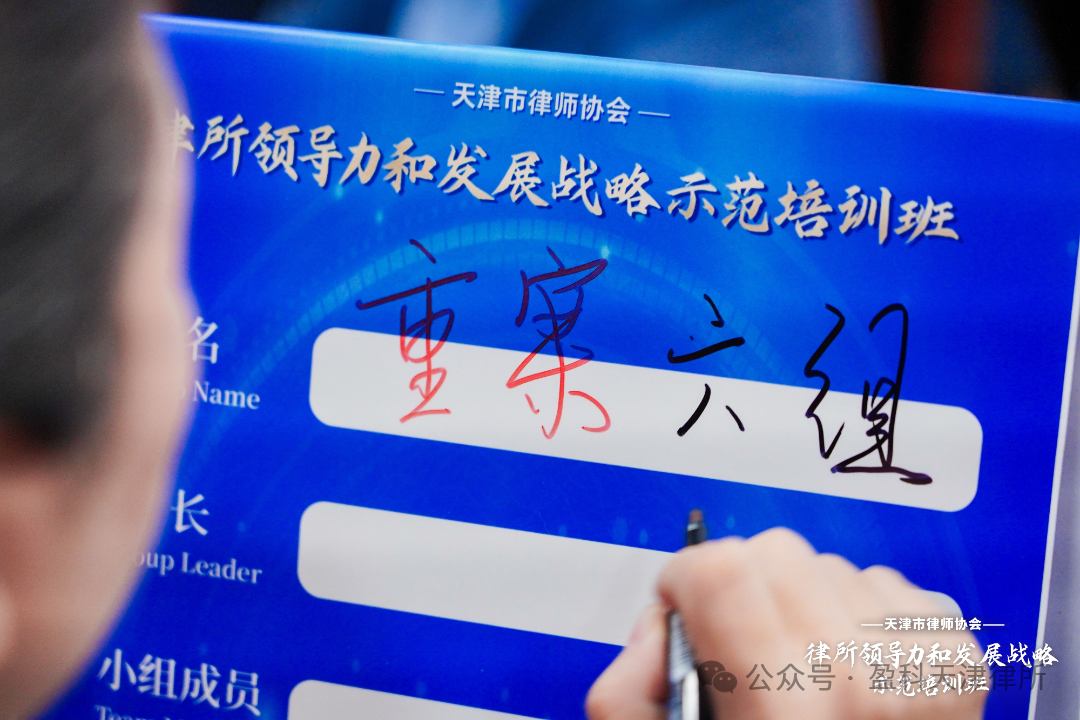 天津市律师协会
律所领导力和发展战略示范培训班
重案六组
名
Name
长
Group Leader
小组成员
天津市律师协会
律所领导力和发展战略
示范培训班
公众号·盈科天津律所